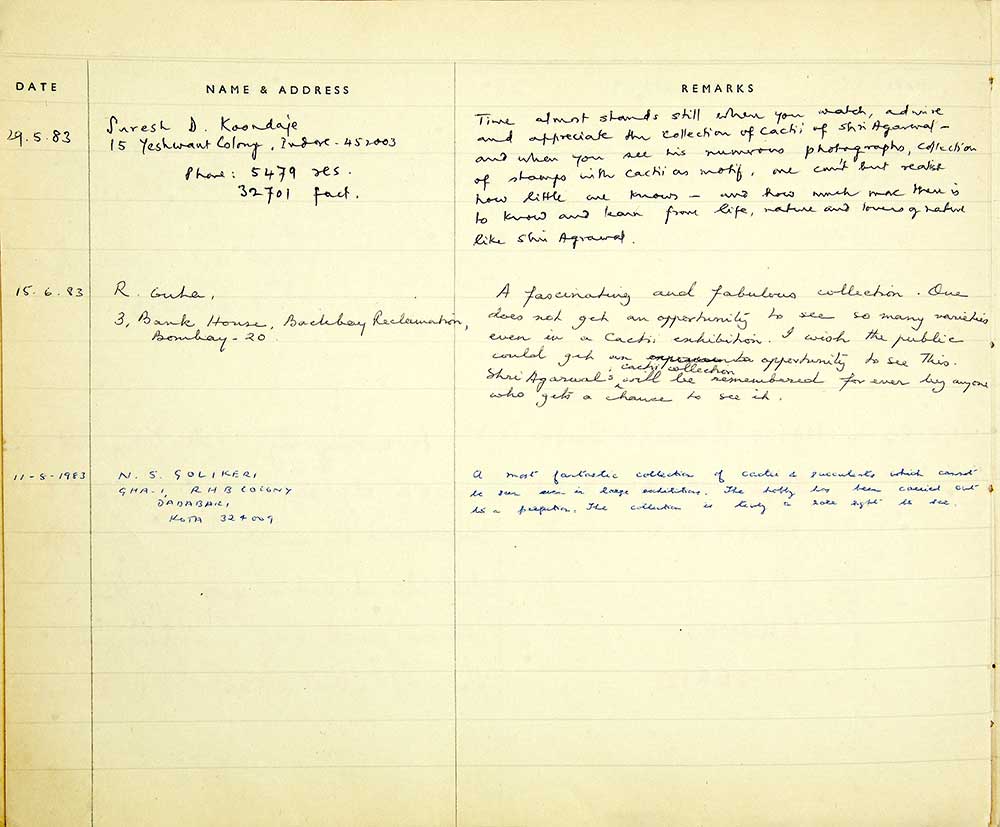 DATE
NAME & ADDRESS
REMARKS
29.5.83
Suresh D. Koondaje
15 Yeshwant Colony, Indore - 452003
Phone: 5479 res.
32701 fact.
Time almost stands still when you watch, admire
and appreciate the collection of Cacti of Shri Agarwal -
and when you see his numerous photographs, collection
of stamps with Cacti as motif, one can't but realise
how little one knows - and how much more there is
to know and learn from life, nature and lovers of nature
like Shri Agrawal.
15.6.83
R. Guha,
3, Bank House, Backbay Reclamation,
Bombay - 20
A fascinating and fabulous collection. One
does not get an opportunity to see so many varieties
even in a Cactii exhibition. I wish the public
could get an opportunity to see this.
Shri Agarwal's cactii collection will be remembered for ever by anyone
who gets a chance to see it.
11-8-1983
N. S. GOLIKERI
GHA-1, RHB COLONY
DADABARI
KOTA 324009
A most fantastic collection of cactii & succulents which cannot
be seen even in large exhibitions. The hobby has been carried out
to a perfection. The collection is truly a rare sight to see.